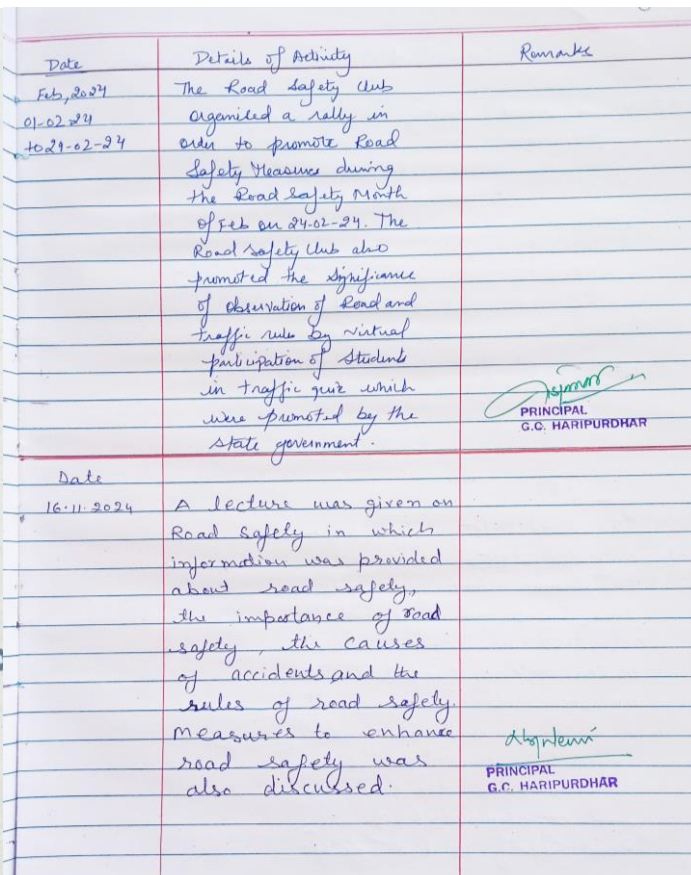 Date Details of Activity Remarks
Feb, 2024 The Road Safety Club
01-02-24 organised a rally in
to 29-02-24 order to promote Road
Safety Measures during
the Road Safety Month
of Feb on 24-02-24. The
Road safety Club also
promoted the significance
of observation of Road and
traffic rules by virtual
participation of Students
in traffic quiz which
were promoted by the
state government.
PRINCIPAL
G.C. HARIPURDHAR
Date
16.11.2024 A lecture was given on
Road Safety in which
information was provided
about road safety,
the importance of road
safety, the causes
of accidents and the
rules of road safety.
Measures to enhance
road safety was
also discussed.
PRINCIPAL
G.C. HARIPURDHAR